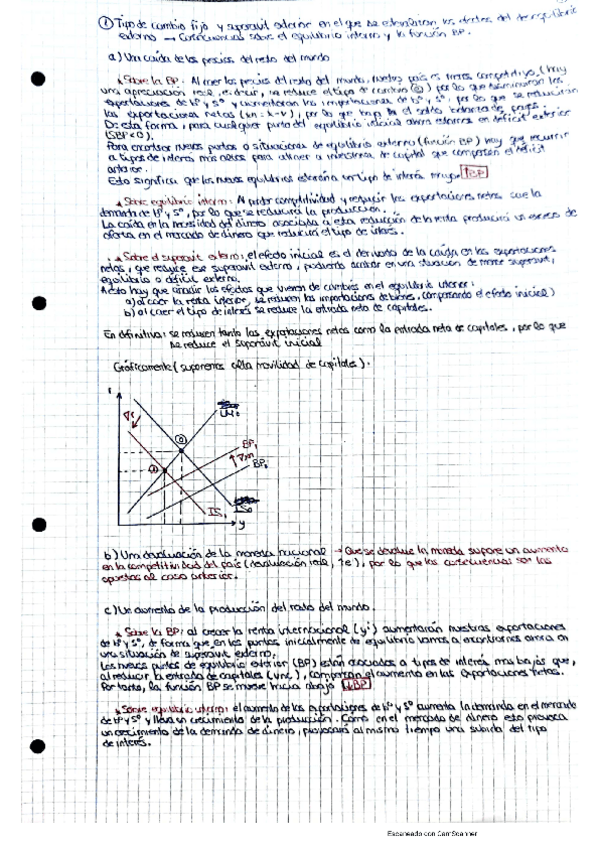 ① Tipo de cambio fijo y superávit externo en el que se esterilizan los efectos del desequilibrio
externo → Consecuencias sobre el equilibrio interno y la función BP.
a) Una caída de los precios del resto del mundo
* Sobre la BP: Al caer los precios del resto del mundo, nuestro país es menos competitivo, (hay
una apreciación real, es decir, se reduce el tipo de cambio) por lo que disminuirán las
exportaciones de bº y sº y aumentarán las importaciones de bº y sº, por lo que se reducirían
las exportaciones netas (xn = x-v), por lo que el saldo balanza de pagos.
De esta forma, para cualquier punto del equilibrio inicial ahora estamos en déficit exterior
(SBP<0).
Para encontrar nuevos puntos o situaciones de equilibrio externo (función BP) hay que recurrir
a tipos de interés más altos para atraer a capital que compensen el déficit
anterior.
Esto significa que los nuevos equilibrios estarán a un tipo de interés mayor ↑BP
* Sobre equilibrio interno: Al perder competitividad y reducir las exportaciones netas cae la
demanda de bº y sº, por lo que se reducirá la producción.
La caída en la necesidad del dinero asociada a esta reducción de la renta producirá un exceso de
oferta en el mercado de dinero que reducirá el tipo de interés.
* Sobre el superávit externo: el efecto inicial es el derivado de la caída en las exportaciones
netas, que reduce ese superávit externo, pudiendo acabar en una situación de menor superávit,
equilibrio o déficit externo.
A esto hay que añadir los efectos que vienen de cambios en el equilibrio interior:
a) al caer la renta interior, se reducen las importaciones de bienes, compensando el efecto inicial)
b) al caer el tipo de interés se reduce la entrada neta de capitales.
En definitiva: se reducen tanto las exportaciones netas como la entrada neta de capitales, por lo que
se reduce el superávit inicial
Gráficamente (suponemos alta movilidad de capitales).
LM₀
BP₁
BP₀
IS₁
IS₀
y
b) Una devaluación de la moneda nacional → Que se devalúe la moneda supone un aumento
en la competitividad del país (devaluación real, ↑e), por lo que las consecuencias son las
opuestas al caso anterior.
c) Un aumento de la producción del resto del mundo.
* Sobre la BP: al crecer la renta internacional (y*) aumentarán nuestras exportaciones
de bº y sº, de forma que en los puntos inicialmente de equilibrio vamos a encontrarnos ahora en
una situación de superávit externo.
Los nuevos puntos de equilibrio exterior (BP) están asociados a tipos de interés más bajos que,
al reducir la entrada de capitales, compensan el aumento en las exportaciones netas.
Por tanto, la función BP se mueve hacia abajo ↓BP
* Sobre equilibrio interno: el aumento de las exportaciones de bº y sº aumenta la demanda en el mercado
de bº y sº y lleva un crecimiento de la producción. Como en el mercado de dinero esto provoca
un crecimiento de la demanda de dinero, provocará al mismo tiempo una subida del tipo
de interés.
Escaneado con CamScanner